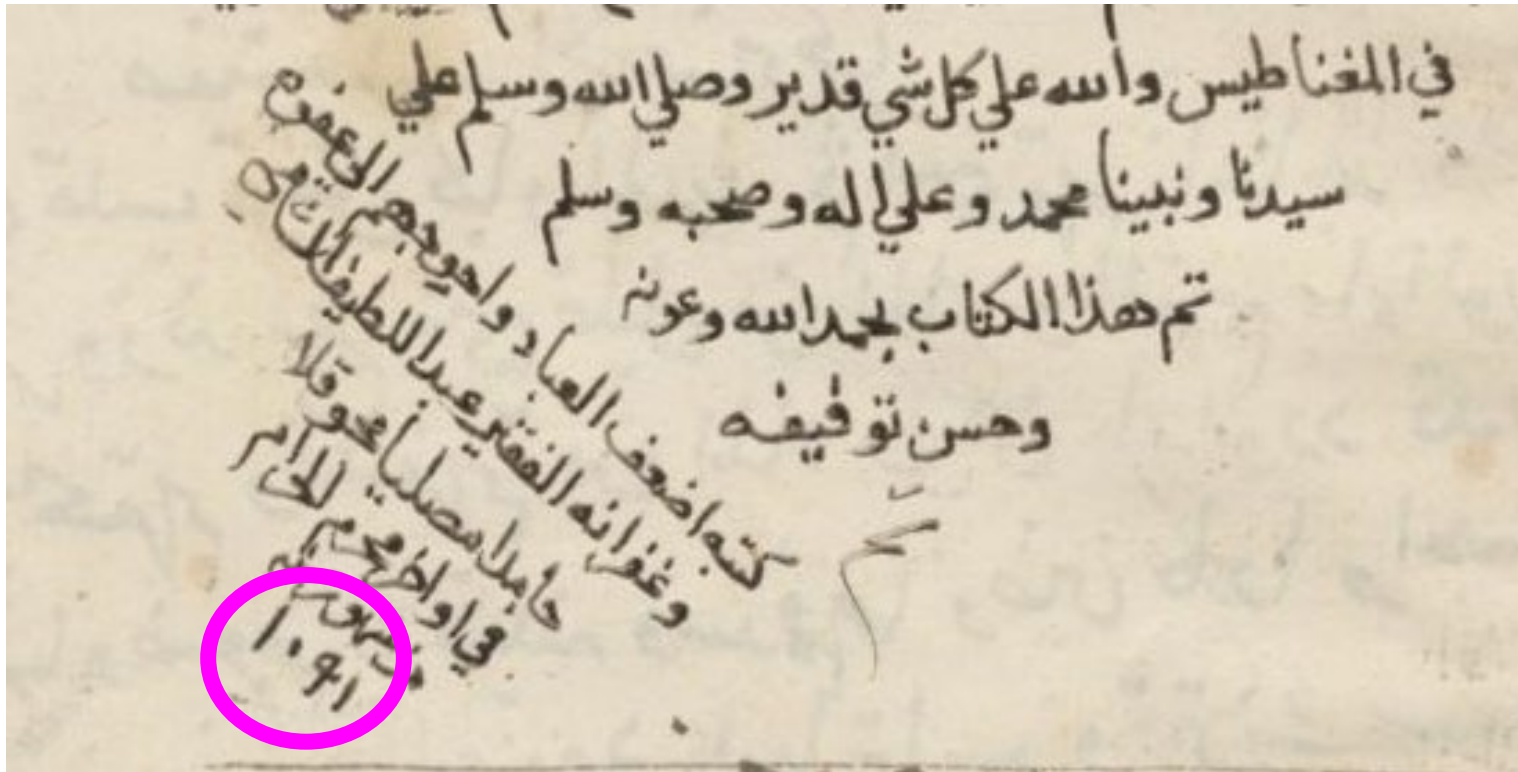 في المغناطيس والله علي كل شي قدير وصلي الله وسلم علي
سيدنا ونبينا محمد وعلي اله وصحبه وسلم
تم هذا الكتاب بحمد الله وعونه
وحسن توفيقه
كتبه اضعف العباد واحوجهم الى عفوه
وغفرانه الفقير عبد اللطيف
حامدا مصليا محوقلا
في اواخر محرم الحرام
من شهور سنة
١٠٩١